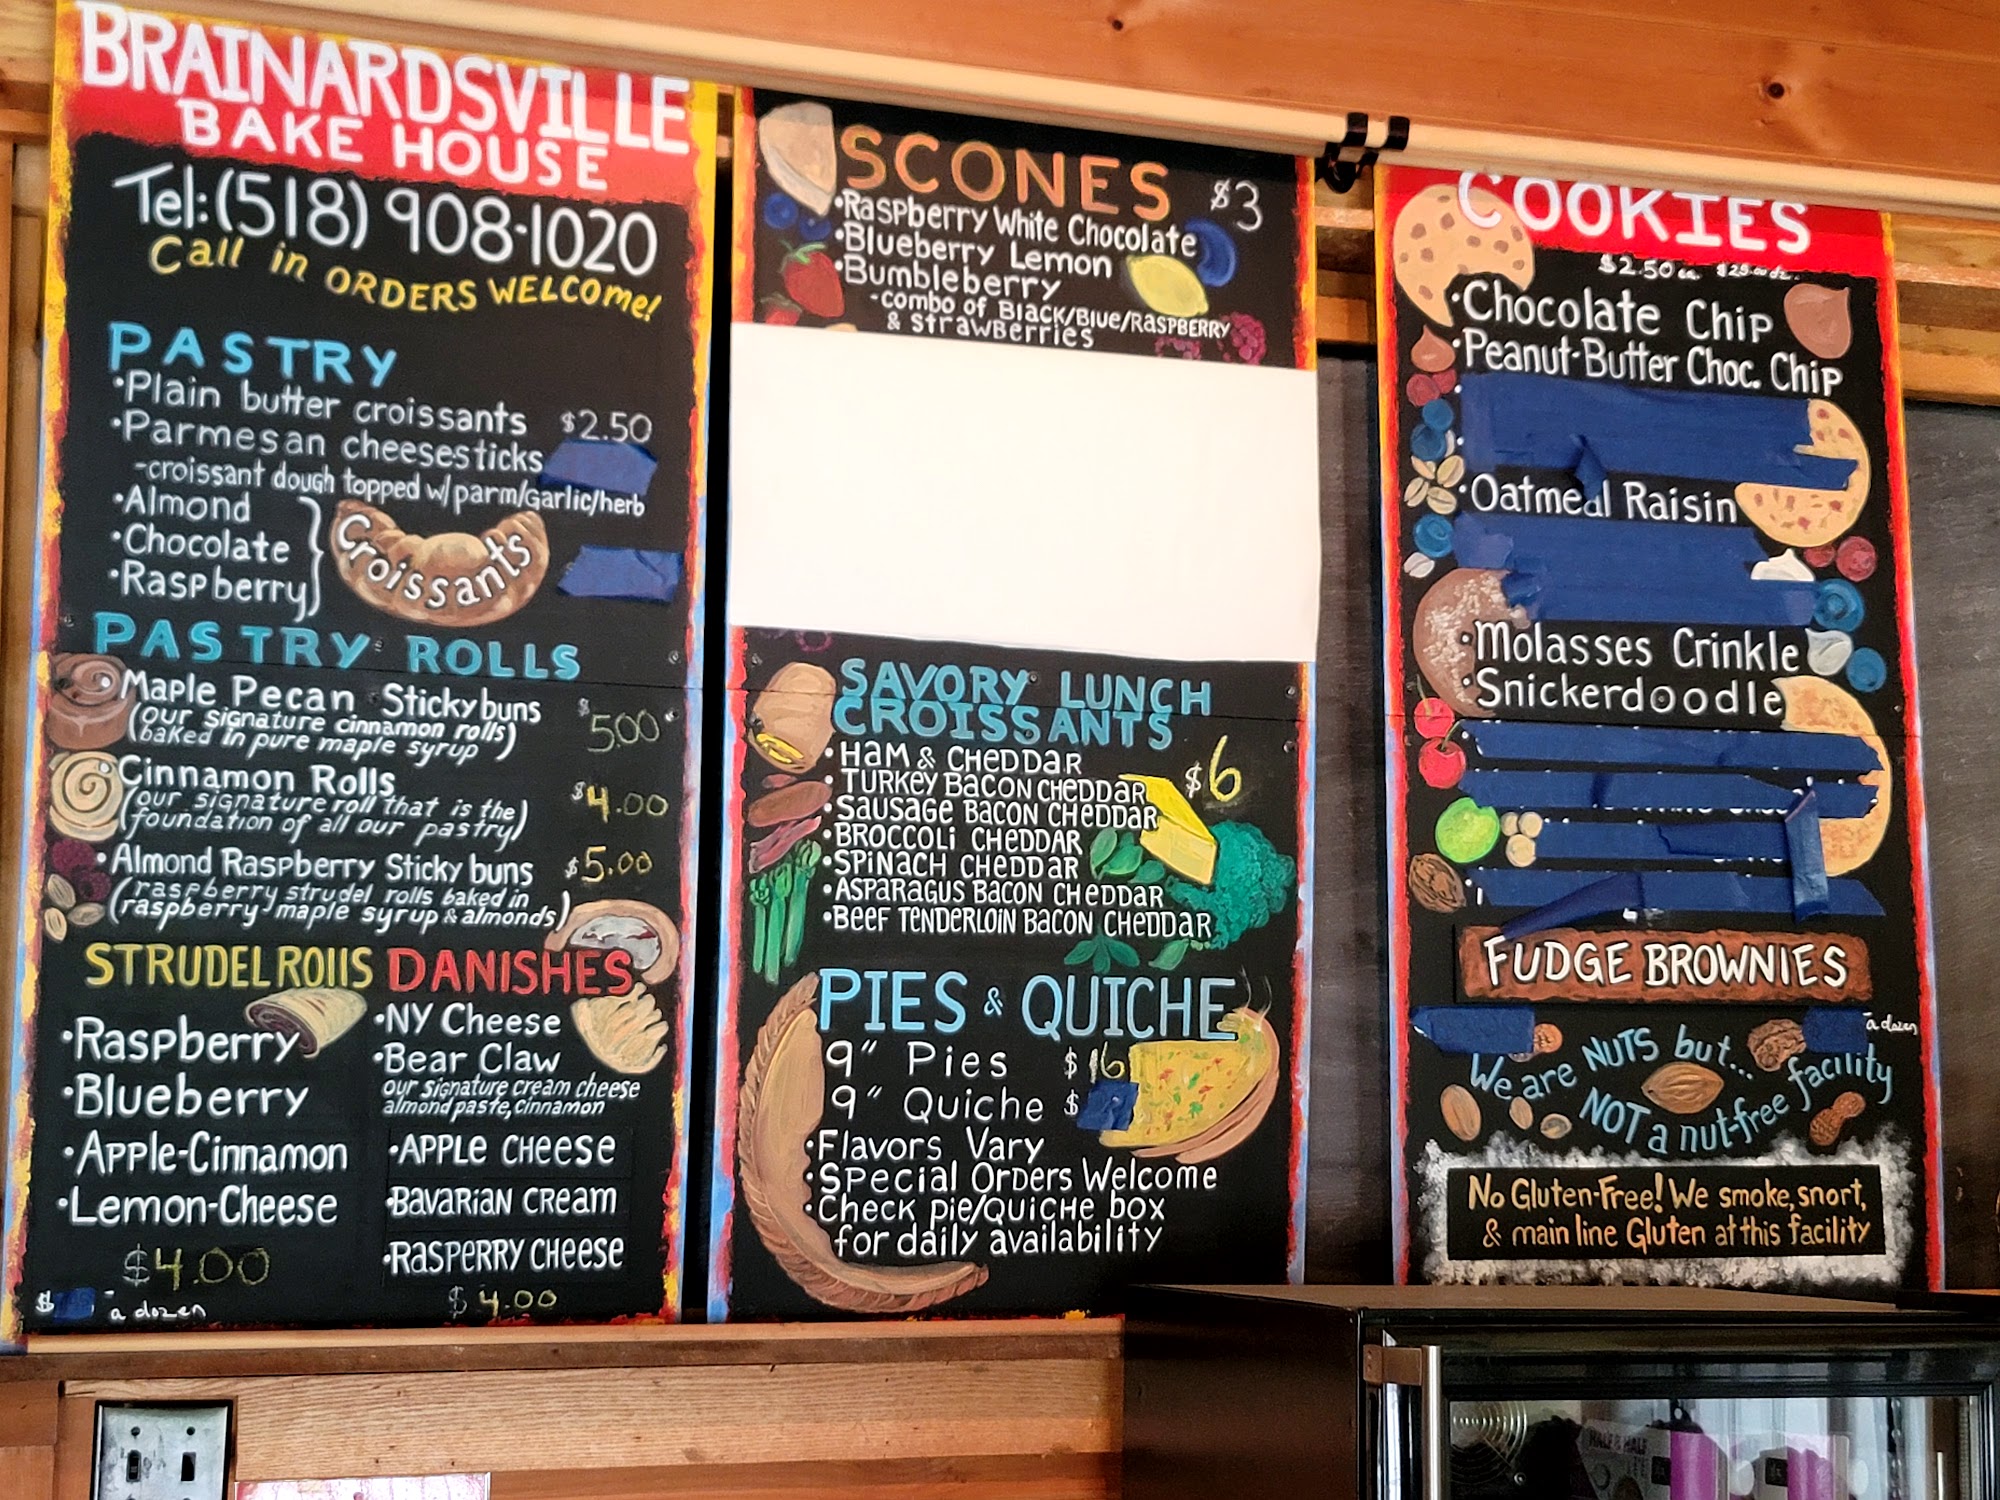 BRAINARDSVILLE
BAKE HOUSE
Tel:(518) 908-1020
Call in ORDERS WELCOME!
PASTRY
•Plain butter croissants $2.50
•Parmesan cheesesticks
-croissant dough topped w/parm/Garlic/herb
•Almond
•Chocolate
•Raspberry
Croissants
PASTRY ROLLS
•Maple Pecan Stickybuns $5.00
(our signature cinnamon rolls)
(baked in pure maple syrup)
Cinnamon Rolls $4.00
(our signature roll that is the)
(foundation of all our pastry)
•Almond Raspberry Sticky buns $5.00
(raspberry strudel rolls baked in)
(raspberry-maple syrup & almonds)
STRUDEL ROllS
•Raspberry
•Blueberry
•Apple-Cinnamon
•Lemon-Cheese
$4.00
$ a dozen
DANISHES
•NY Cheese
•Bear Claw
our signature cream cheese
almond paste, cinnamon
•APPLE CHEESE
•BAVARIAN CREAM
•RASPERRY CHEESE
$4.00
SCONES $3
•Raspberry White Chocolate
•Blueberry Lemon
•Bumbleberry
-combo of Black/Blue/RASPBERRY
& Strawberries
SAVORY LUNCH
CROISSANTS
$6
•HAM & CHEDDAR
•TURKEY BACON CHEDDAR
•SAUSAGE BACON CHEDDAR
•BROCCOLI CHEDDAR
•SPINACH CHEDDAR
•ASPARAGUS BACON CHEDDAR
•BEEF TENDERLOIN BACON CHEDDAR
PIES & QUICHE
9" Pies $16
9" Quiche $
•Flavors Vary
•Special Orders Welcome
•Check pie/QUICHE box
for daily availability
COOKIES
$2.50 ea $25.00 dz.
•Chocolate Chip
•Peanut-Butter Choc. Chip
•Oatmeal Raisin
•Molasses Crinkle
•Snickerdoodle
FUDGE BROWNIES
a dozen
We are NUTS but...
NOT a nut-free facility
No Gluten-Free! We smoke, snort,
& main line Gluten at this facility
HALF & HALF